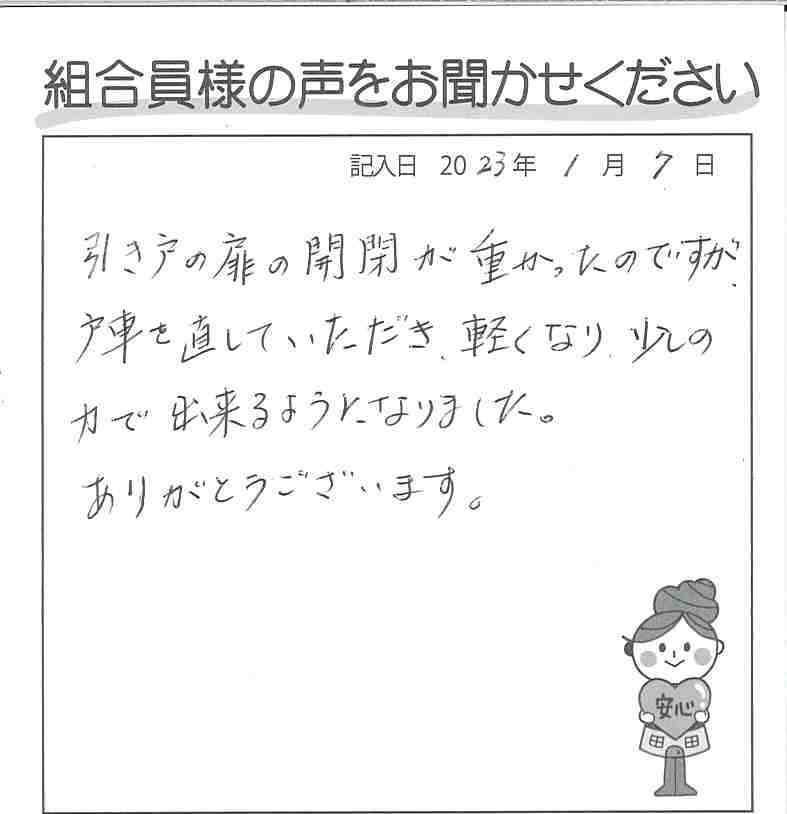 組合員様の声をお聞かせください
記入日 2023年 1月 7日
引き戸の扉の開閉が重かったのですが、
戸車を直していただき、軽くなり、少しの
力で出来るようになりました。
ありがとうございます。
安心